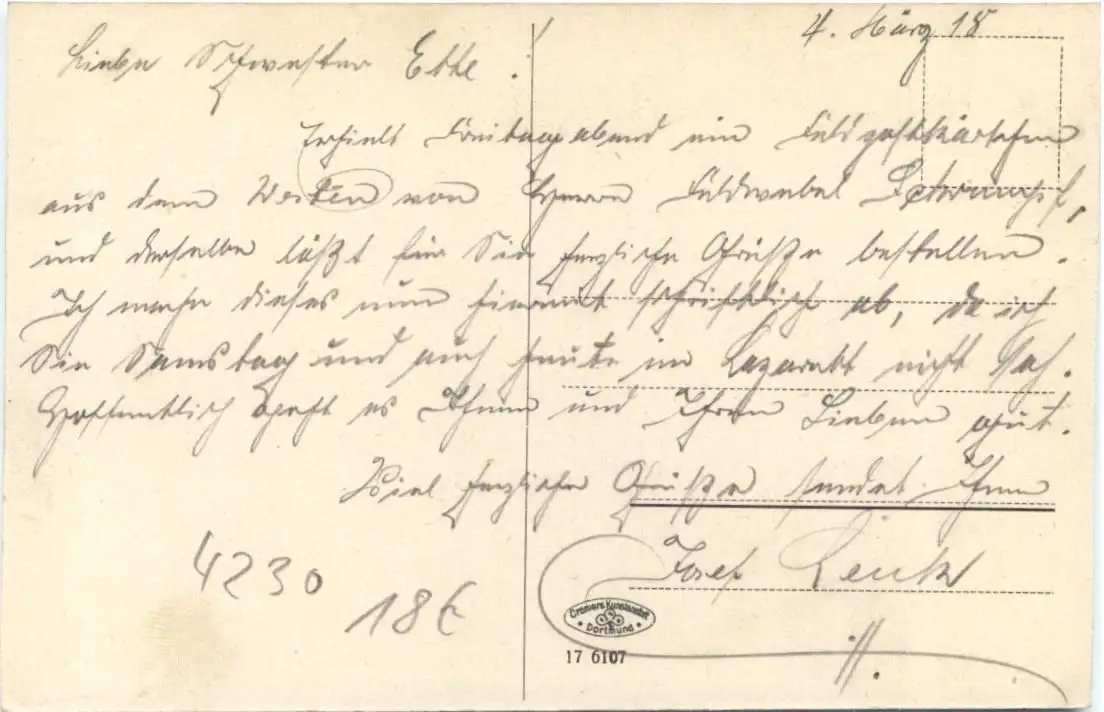 4. März 18
Liebe Schwester Ette!
Erhielt Freitag abend ein Feldpostkärtchen
aus dem Westen von Herrn Feldwebel
und derselbe läßt für Sie herzliche Grüße bestellen.
Ich mache dieses nun hiermit schriftlich ab, da ich
Sie Samstag und auch heute im Lazarett nicht sah.
Hoffentlich geht es Ihnen und Ihren Lieben gut.
Viel herzliche Grüße sendet Ihnen
Josef
4230
18€
Cramers Kunstanstalt
Dortmund
17 6107